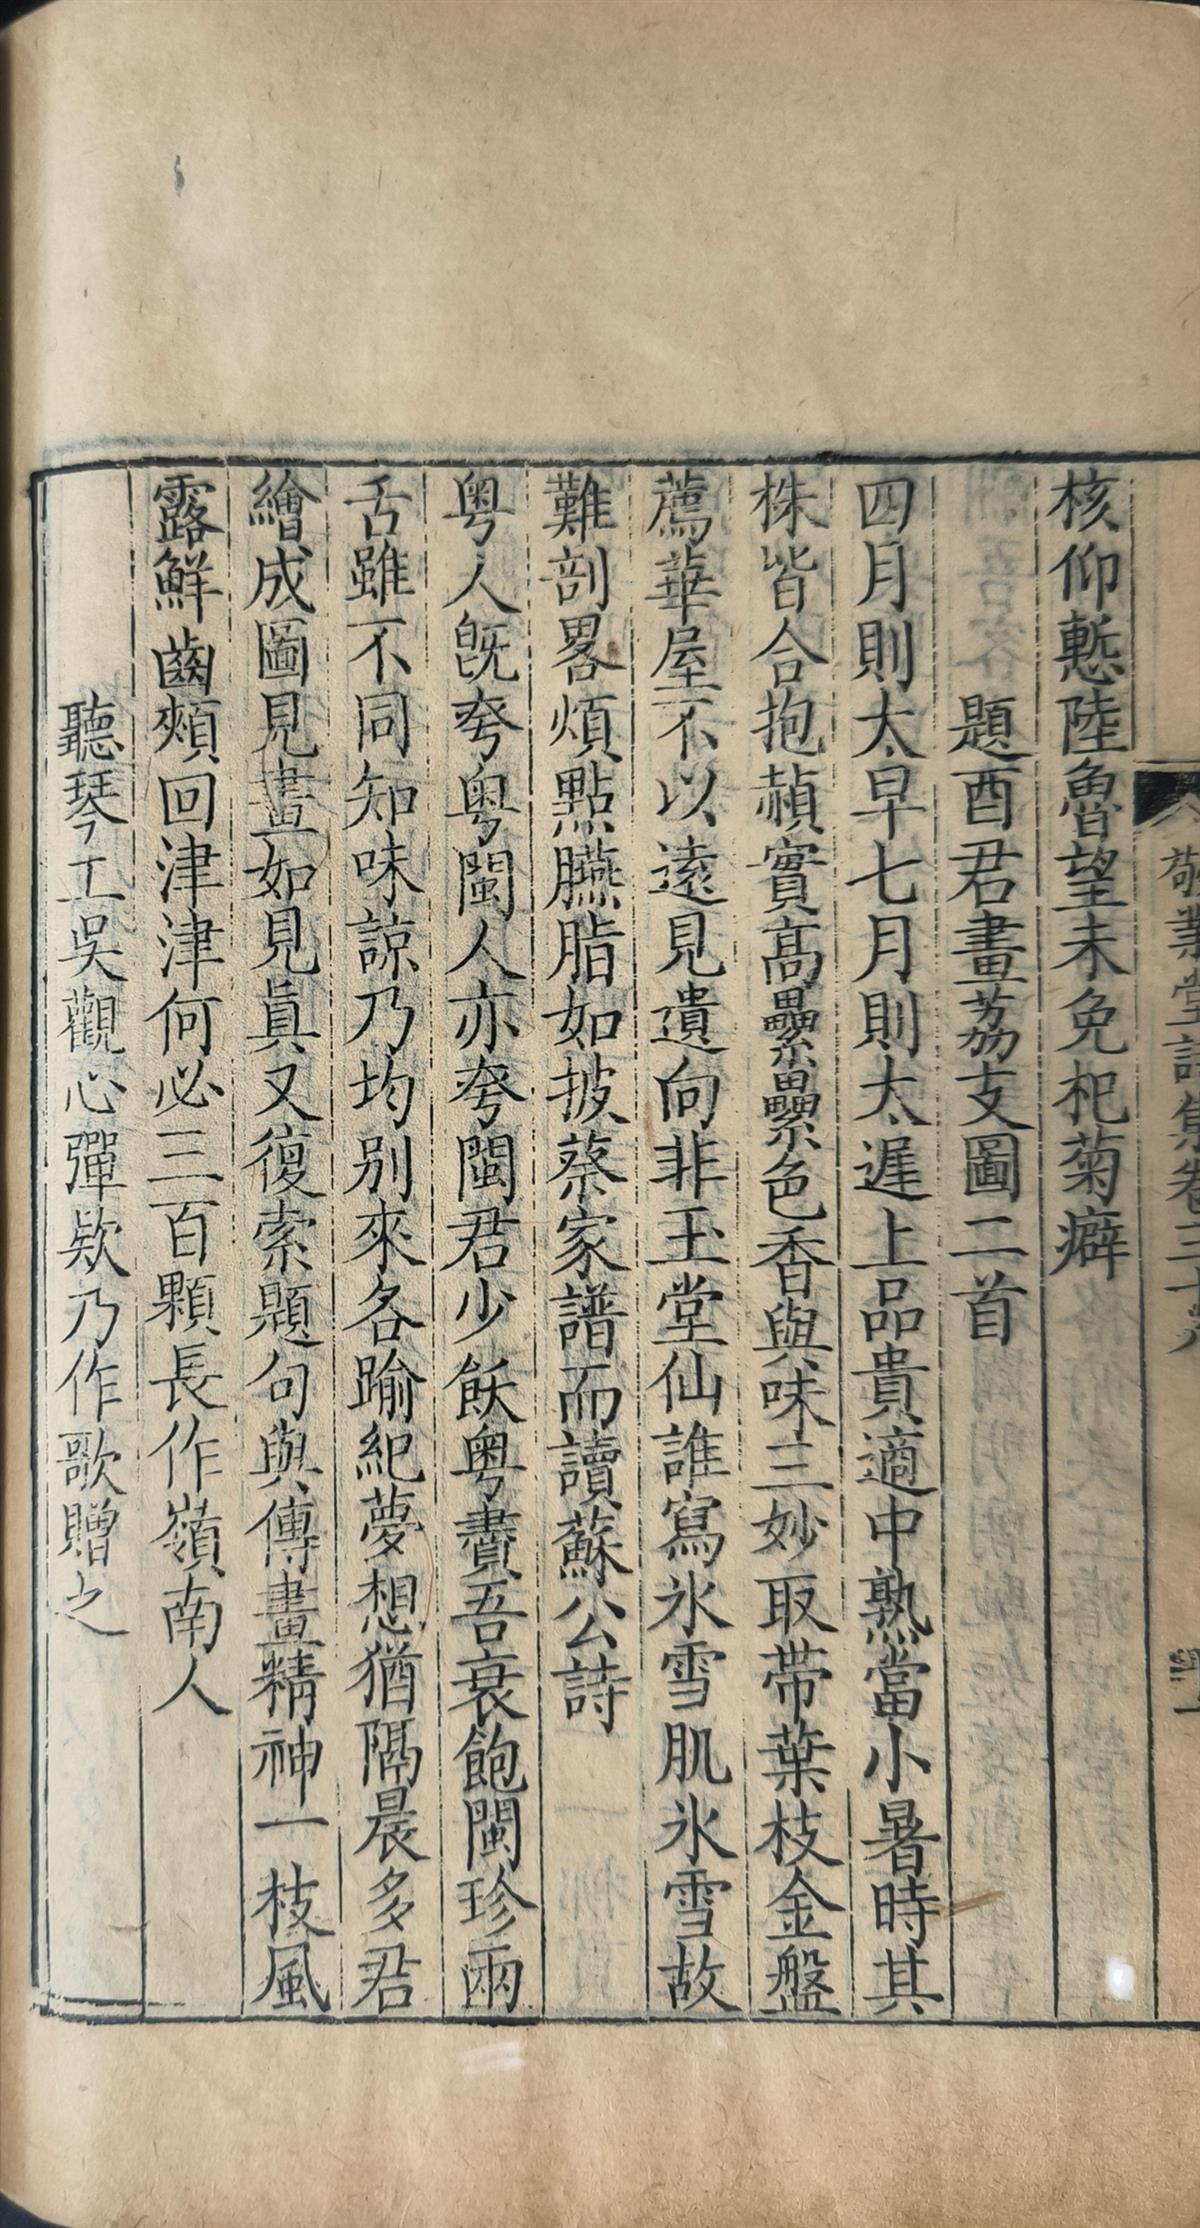 敬業堂詩集卷三十八
核仰慙陸魯望未免杞菊癖
題酉君畫茘支圖二首
四月則太早七月則太遲上品貴適中熟當小暑時其
株皆合抱赬實高纍纍色香與味三妙取帶葉枝金盤
薦華屋不以遠見遺向非玉堂仙誰寫氷雪肌氷雪故
難剖畧煩點臙脂如披蔡家譜而讀蘇公詩
粤人旣夸粤閩人亦夸閩君少飫粤賷吾衰飽閩珍兩
舌雖不同知味諒乃均别來各踰紀夢想猶隔晨多君
繪成圖見畫如見眞又復索題句與傳畫精神一枝風
露鮮齒頰回津津何必三百顆長作嶺南人
聽琴工吳觀心彈欵乃作歌贈之